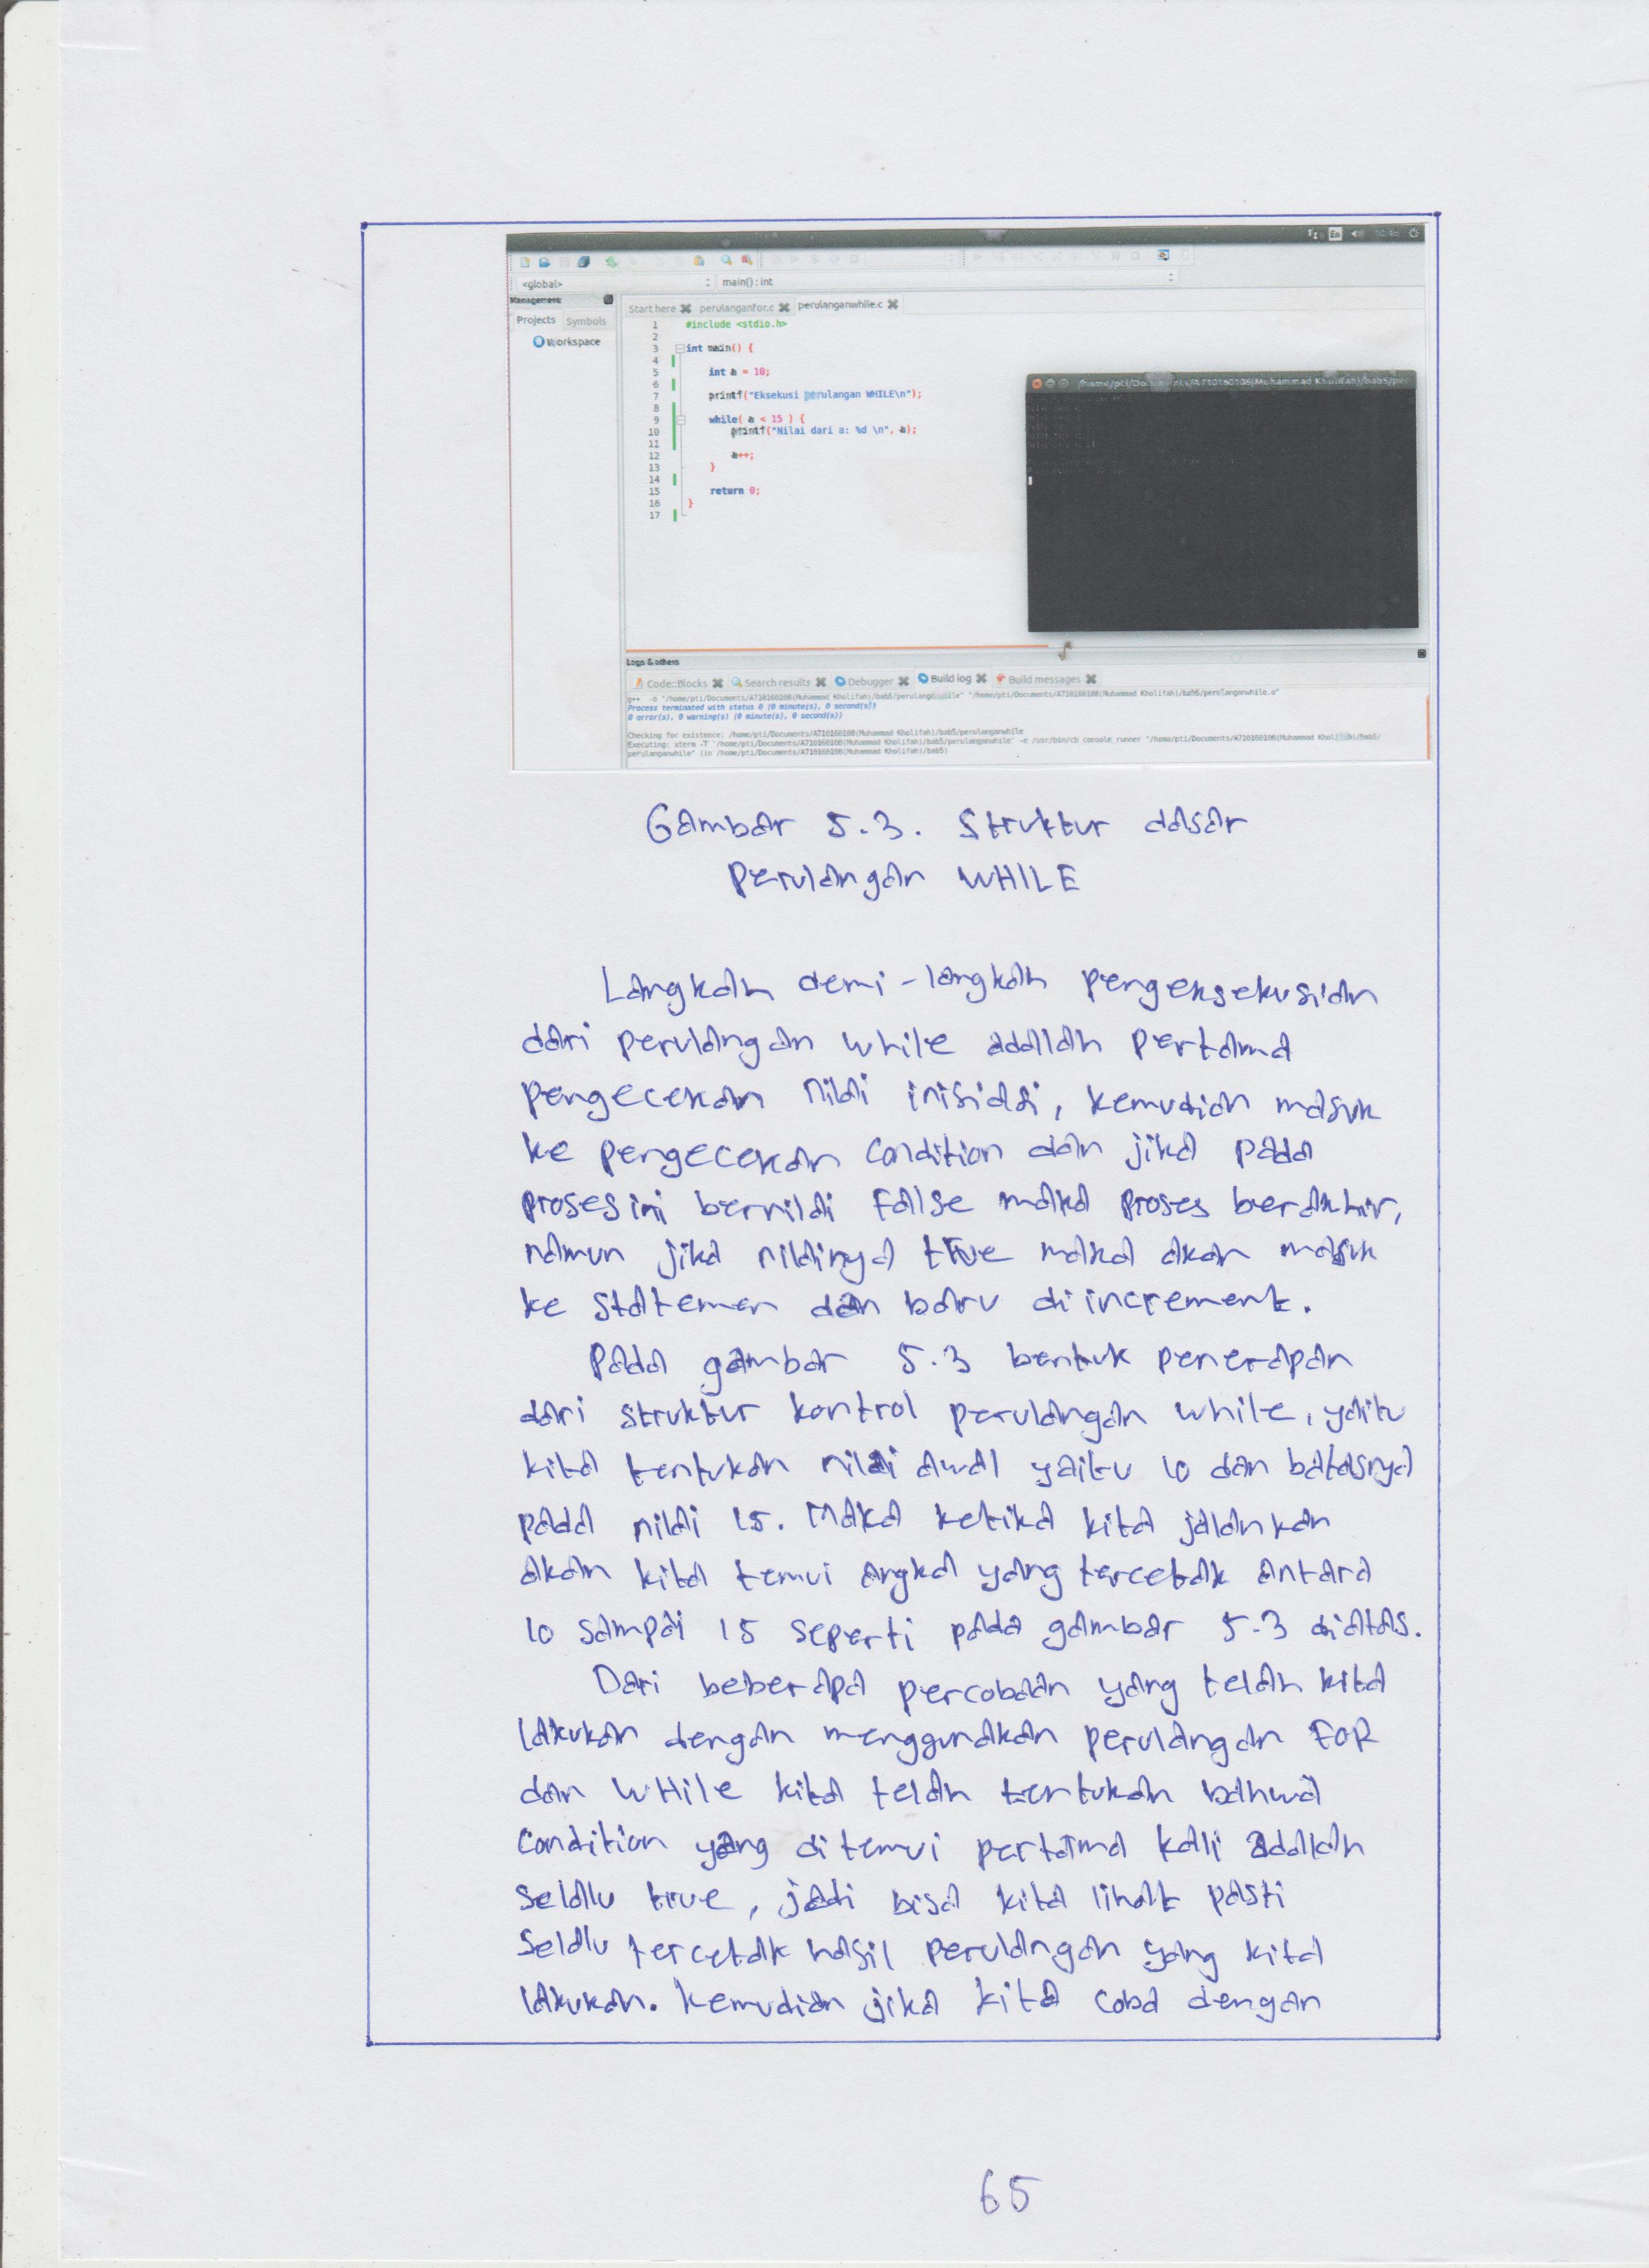 En
<global>
main() : int
Management
Projects
Symbols
Workspace
Start here
perulanganfor.c
perulanganwhile.c
1 #include <stdio.h>
2
3 int main() {
4
5 int a = 10;
6
7 printf("Eksekusi perulangan WHILE\n");
8
9 while( a < 15 ) {
10 printf("Nilai dari a: %d \n", a);
11
12 a++;
13 }
14
15 return 0;
16 }
17
/home/pti/Documents/A710160108(Muhammad Kholifah)/bab5/
Logs & others
Code::Blocks
Search results
Debugger
Build log
Build messages
g++ -o "/home/pti/Documents/A710160108(Muhammad Kholifah)/bab5/perulanganwhile" "/home/pti/Documents/A710160108(Muhammad Kholifah)/bab5/perulanganwhile.o"
Process terminated with status 0 (0 minute(s), 0 second(s))
0 error(s), 0 warning(s) (0 minute(s), 0 second(s))
Checking for existence: /home/pti/Documents/A710160108(Muhammad Kholifah)/bab5/perulanganwhile
Executing: xterm -T '/home/pti/Documents/A710160108(Muhammad Kholifah)/bab5/perulanganwhile' -e /usr/bin/cb_console_runner "/home/pti/Documents/A710160108(Muhammad Kholifah)/bab5/
perulanganwhile" (in /home/pti/Documents/A710160108(Muhammad Kholifah)/bab5)
Gambar 5.3. Struktur dasar
Perulangan WHILE
Langkah demi-langkah pengeksekusian
dari perulangan while adalah pertama
pengecekan nilai inisiasi, kemudian masuk
ke pengecekan condition dan jika pada
proses ini bernilai false maka proses berakhir,
namun jika nilainya true maka akan masuk
ke statemen dan baru di increment.
Pada gambar 5.3 bentuk penerapan
dari struktur kontrol perulangan while, yaitu
kita tentukan nilai awal yaitu 10 dan batasnya
pada nilai 15. Maka ketika kita jalankan
akan kita temui angka yang tercetak antara
10 sampai 15 seperti pada gambar 5.3 diatas.
Dari beberapa percobaan yang telah kita
lakukan dengan menggunakan perulangan FOR
dan WHile kita telah tentukan bahwa
condition yang ditemui pertama kali adalah
selalu true, jadi bisa kita lihat pasti
selalu tercetak hasil perulangan yang kita
lakukan. Kemudian jika kita coba dengan
65